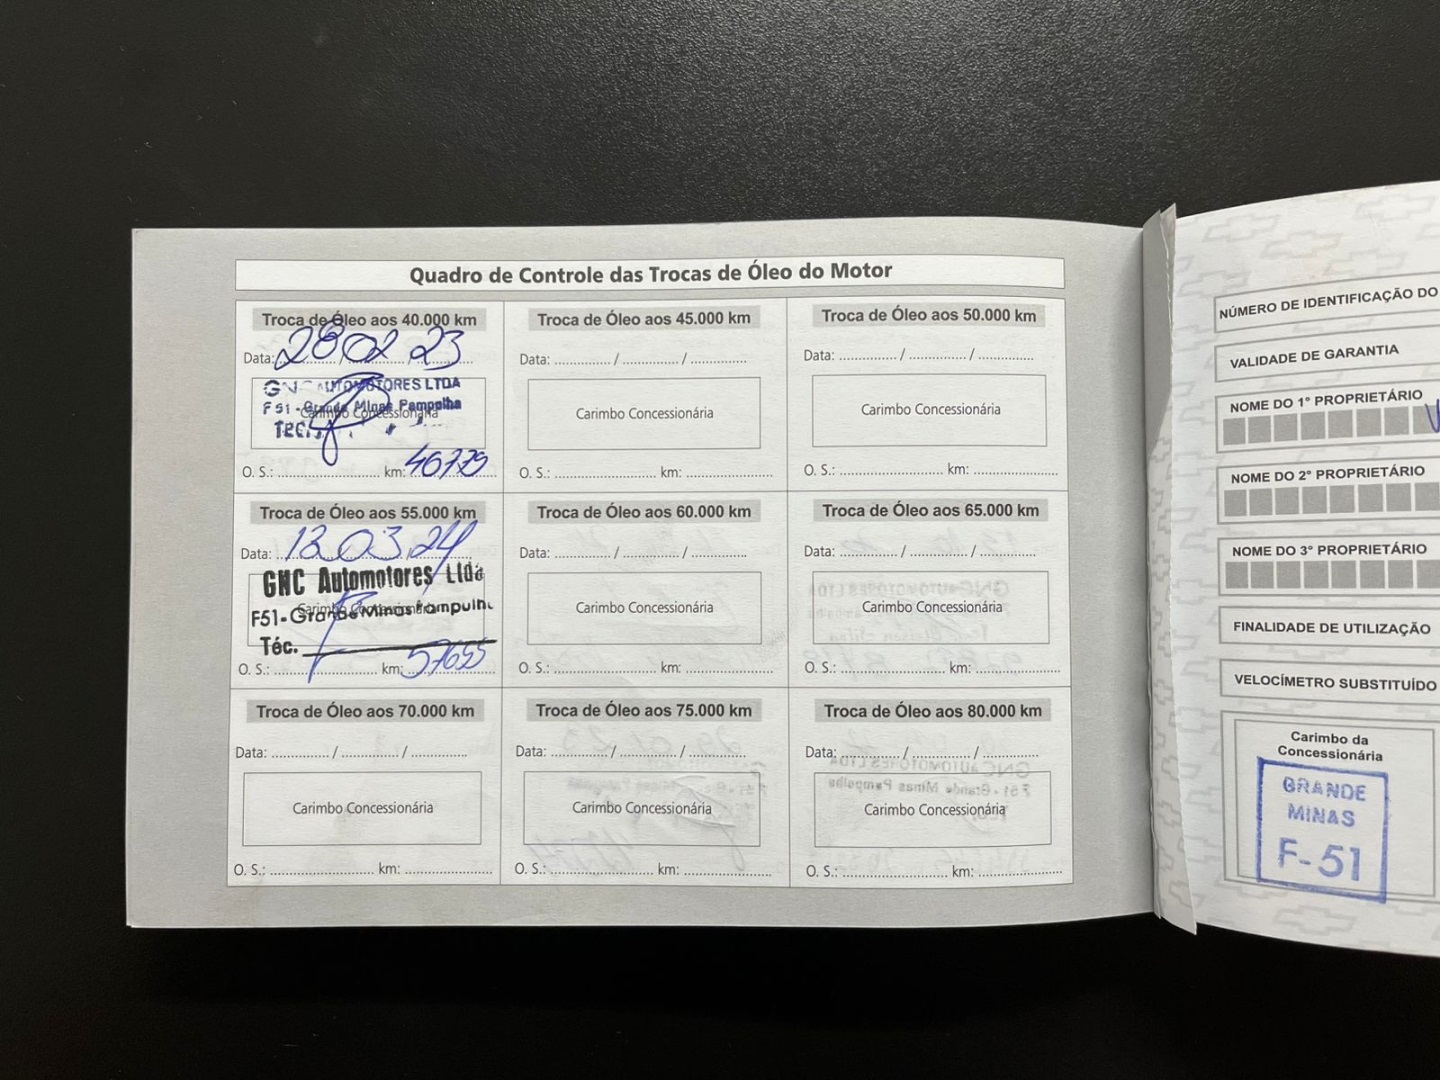 Quadro de Controle das Trocas de Óleo do Motor
Troca de Óleo aos 40.000 km
Data: 28 02 23
GNC AUTOMOTORES LTDA
F 51 - Grande Minas Pampulha
Carimbo Concessionária
O. S.: km: 46779
Troca de Óleo aos 45.000 km
Data: / /
Carimbo Concessionária
O. S.: km:
Troca de Óleo aos 50.000 km
Data: / /
Carimbo Concessionária
O. S.: km:
Troca de Óleo aos 55.000 km
Data: 13 03 24
GNC Automotores Ltda
F51-Grande Minas Pampulha
Carimbo Concessionária
Téc.
O. S.: km: 57655
Troca de Óleo aos 60.000 km
Data: / /
Carimbo Concessionária
O. S.: km:
Troca de Óleo aos 65.000 km
Data: / /
Carimbo Concessionária
O. S.: km:
Troca de Óleo aos 70.000 km
Data: / /
Carimbo Concessionária
O. S.: km:
Troca de Óleo aos 75.000 km
Data: / /
Carimbo Concessionária
O. S.: km:
Troca de Óleo aos 80.000 km
Data: / /
Carimbo Concessionária
O. S.: km:
NÚMERO DE IDENTIFICAÇÃO DO
VALIDADE DE GARANTIA
NOME DO 1° PROPRIETÁRIO
NOME DO 2° PROPRIETÁRIO
NOME DO 3° PROPRIETÁRIO
FINALIDADE DE UTILIZAÇÃO
VELOCÍMETRO SUBSTITUÍDO
Carimbo da
Concessionária
GRANDE
MINAS
F-51